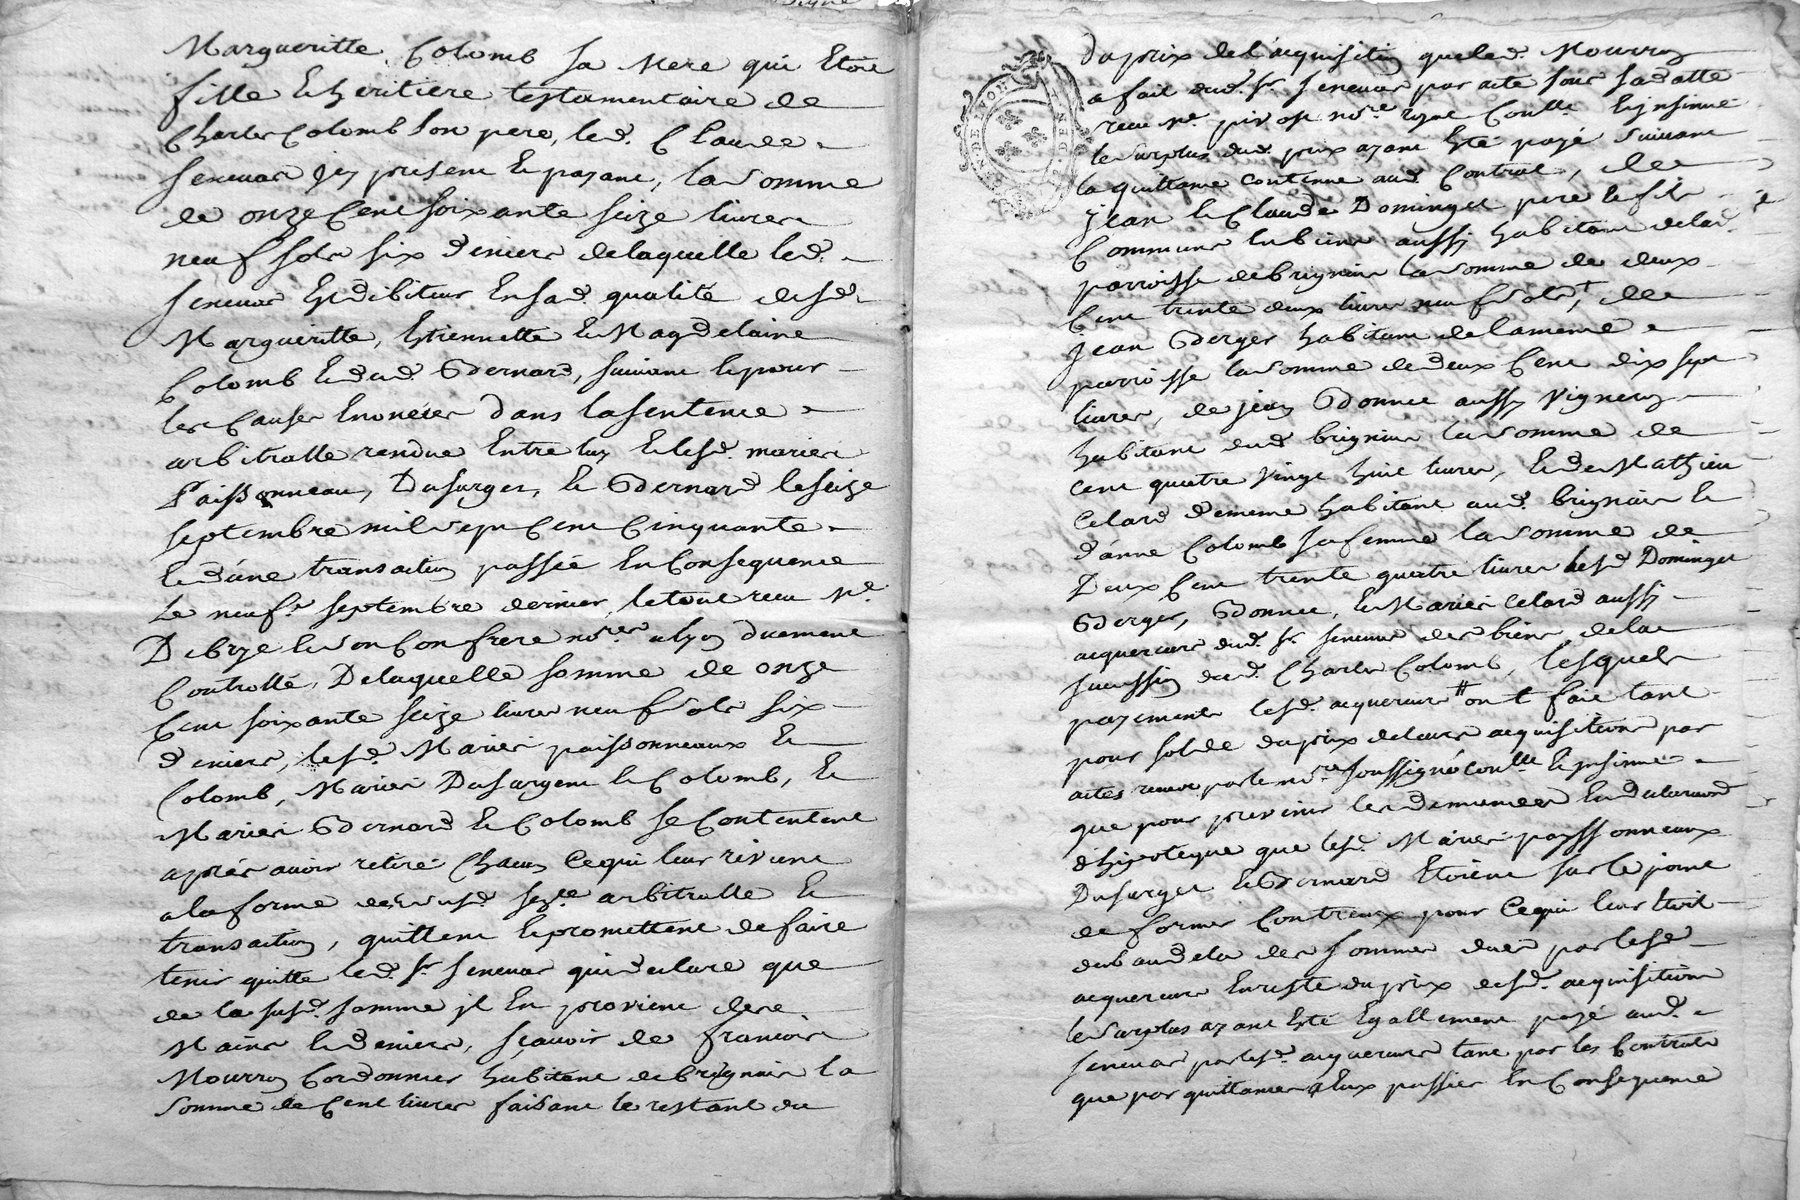 Margueritte Colomb sa Mere qui Etoit
fille & heritiere testamentaire de
Charles Colomb son pere, led. Claude
Senevas Jcy present & payant, la somme
de onze Cent soixante seize livres
neuf sols six deniers de laquelle led.
Senevas Est debiteur En sad. qualité desd.
Margueritte, Etiennette & Magdelaine
Colomb & dud. Bernard, suivant & pour
les Causes Enoncées dans la sentence
arbitralle rendue Entre luy & lesd. mariés
Paissonneau, Dusurges, & Bernard le seize
septembre mil sept Cent Cinquante
& d'une transaction passée En Consequence
le neuf. septembre dernier, le tout recu Me
Debrye & son Confrere nores a lyon duement
Controllé, De laquelle somme de onze
Cent soixante seize livres neuf sols six
deniers, lesd. Mariés paissonneaux &
Colomb, Mariés Dusurgent & Colomb, &
Mariés Bernard & Colomb se Contentent
après avoir retiré Chacun Ce qui leur revient
a la forme desusd. sce arbitralle &
transaction, quittent & promettent de faire
tenir quitte led. Sr Senevas qui declare que
de la susd. somme jl En provient des
Mains & deniers, sçavoir de francois
Mourron Cordonnier habitant de brignais la
somme de Cent livres faisant le restant du
du prix de l'acquisition que led. Mourron
a fait dud. Sr Senevas par acte sous sa datte
recu Me nore Royal Conllé & jnsinué
le surplus dud. prix ayant Eté payé suivant
la quittance contenue aud. Contrat, de
jean & Claude Dominget pere & fils
Communs En biens aussy habitans de lad.
parroisse de brignais la somme de deux
Cent trente deux livres neuf sols, de
jean Berger habitant de la meme
parroisse la somme de deux Cent dix sept
livres, de jean Bonnet aussy Vigneron
habitant dud. brignais la somme de
cent quatre vingt huit livres, & de Mathieu
Celard de meme habitant aud. brignais &
d'anne Colomb sa femme la somme de
Deux Cent trente quatre livres lesd. Dominget
Berger, Bonnet, & Mariés Celard aussy
acquereurs dud. Sr Senevas des biens de la
succession dud. Charles Colomb, lesquels
payements lesd. acquereurs ont fait tant
pour solde du prix de leurs acquisitions par
actes recus par le nore soussigné conllé & jnsinué
que pour prevenir les demandes En delaissement
d'hipoteque que lesd. Mariés payssonneaux
Dusurget & Bernard Etoient sur le point
de former Contreux pour Ce qui leur Etoit
du au dela des sommes dues par lesd.
acquereurs En reste du prix desd. acquisitions
le surplus ayant Eté Egallement payé aud.
Senevas par lesd. acquereurs tant par les Contrats
que par quittances a Eux passées En Consequence